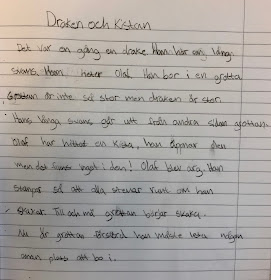 Draken och Kistan
Det var en gång en drake. Han har en lång
svans. Han heter Olaf. Han bor i en grotta
Grottan är inte så stor men draken är stor.
Hans långa svans går ut från andra sidan grottan.
Olaf har hittat en kista, han öppnar den
men det finns inget i den! Olaf blev arg. Han
stampar så att alla stenar runt om han
skakar. Till och må grottan börjar skaka.
Nu är grottan förstörd han måste leta någon
annan plats att bo i.